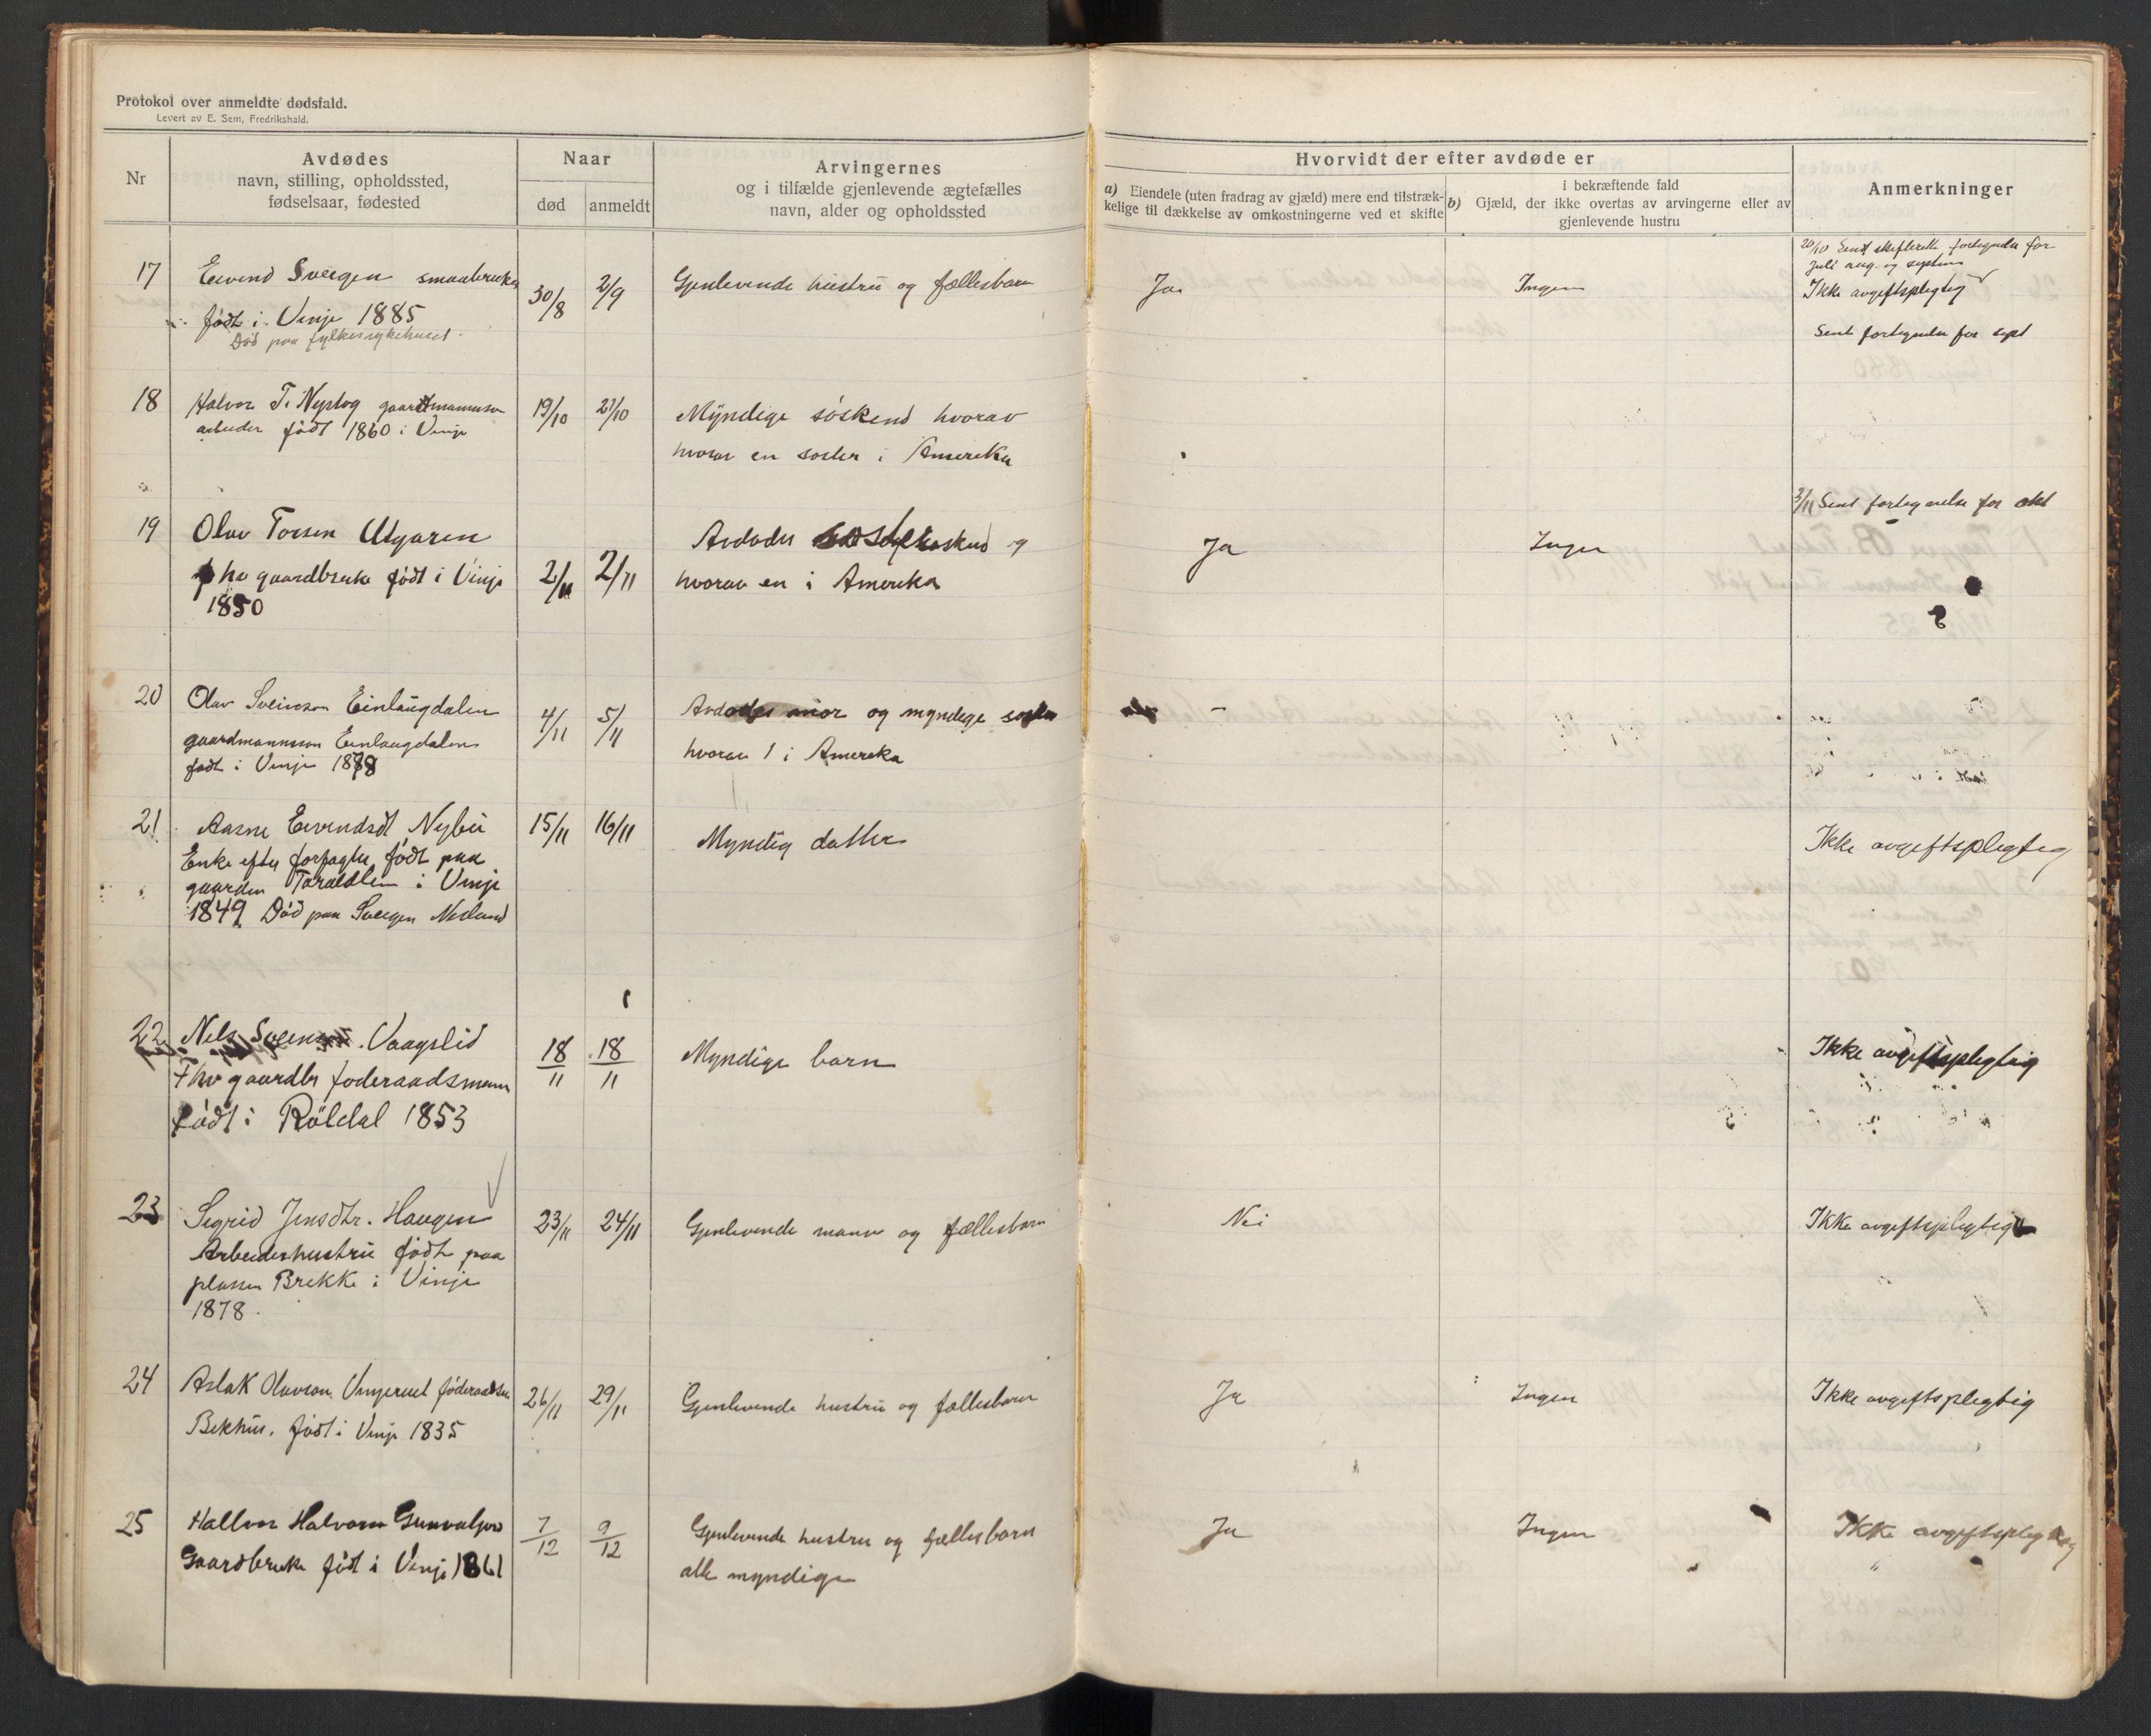 Protokol over anmeldte dødsfald.
Levert av E. Sem, Fredrikshald.
Nr
Avdødes
navn, stilling, opholdssted,
fødselsaar, fødested
Naar
død
anmeldt
Arvingernes
og i tilfælde gjenlevende ægtefælles
navn, alder og opholdssted
Hvorvidt der efter avdøde er
a) Eiendele (uten fradrag av gjæld) mere end tilstræk-
kelige til dækkelse av omkostningerne ved et skifte
i bekræftende fald
b) Gjæld, der ikke overtas av arvingerne eller av
gjenlevende hustru
Anmerkninger
20/10 Sent fortegnelse for
Juli aug. og septem
17 Eivend Sveigen smaabruker 30/8 2/9 Gjenlevende hustru og fællesbarn Ja Ingen Ikke avgiftspligtig
født i Vinje 1885
Død paa fylkessykehuset.
Sent fortegnelse for sept
18 Halvor T. Nystog gaardmannsøn 19/10 21/10 Myndige søskend hvorav
arbeider født 1860 i Vinje
hvorav en søster i Amerika
3/11 Sent fortegnelse for okt
19 Olav Torsen Utgaren 2/11 2/11 Avdødes og Ja Ingen
hv gaardbruke født i Vinje
hvorav en i Amerika
1850
20 Olav Sveinson Einlaugdalen 4/11 5/11 Avdødes mor og myndige -
gaardmannsson Einlaugdalen
hvorav 1 i Amerika
født i Vinje
21 Aasne Eivendsdt Nybu 15/11 16/11 Myndig datter Ikke avgiftspligtig
Enke efter forpagter født paa
gaarden Taraldlien i Vinje
1849 Død paa Sveigen Neslund
22 Nels Vaagslid 18/11 18/11 Myndige barn Ikke avgiftspligtig
Fhv gaardbr foderaadsmann
født i Röldal 1853
23 Sigrid Jensdtr. Haugen 23/11 24/11 Gjenlevende mann og fællesbarn Nei Ikke avgiftspligtig
Arbeiderhustru født paa
plassen Brekke i Vinje
1878.
24 Aslak Olavson Vinjerui 26/11 29/11 Gjenlevende hustru og fællesbarn Ja Ingen Ikke avgiftspligtig
Bekhus. født i Vinje 1835
25 Hallvor Halvorsen Gunvaljord 7/12 9/12 Gjenlevende hustru og fællesbarn Ja Ingen Ikke avgiftspligtig
Gaardbruke født i Vinje 1861
alle myndige